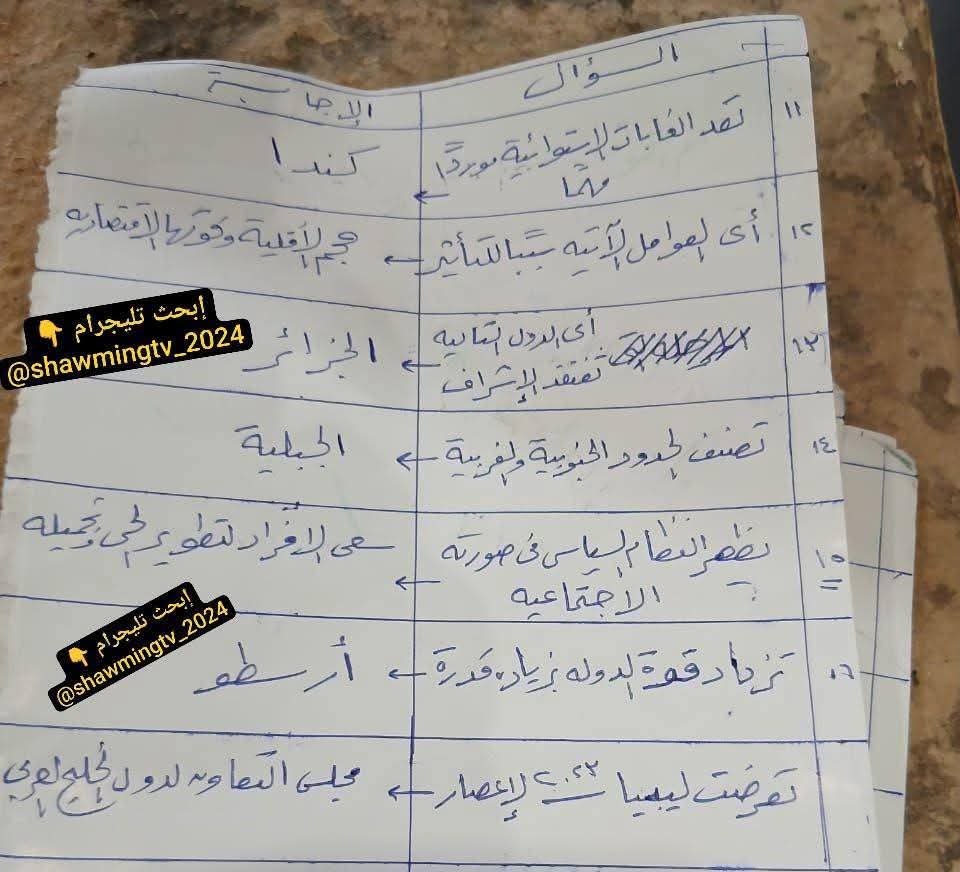 السؤال
الإجابة
١١
تعد الغابات الإستوائية موردًا
مهمًا
←
كندا
١٢
أى العوامل الآتيه سببًا للتأثير ←
حجم الأقلية وقوتها الاقتصاديه
١٣
أى الدول التاليه
تفتقد الإشراف ←
الجزائر
١٤
تصنف الحدود الجنوبية والغربية ←
الجبلية
١٥
يظهر النظام السياسى فى صورته
الاجتماعيه
←
سعى الأفراد لتطوير الحى وتجميله
١٦
تزداد قوة الدوله بزياده قدرة ←
أرسطو
تعرضت ليبيا ٢٠٢٣ لإعصار ←
مجلس التعاون لدول الخليج العربى
إبحث تليجرام 👇
@shawmingtv_2024
إبحث تليجرام 👇
@shawmingtv_2024